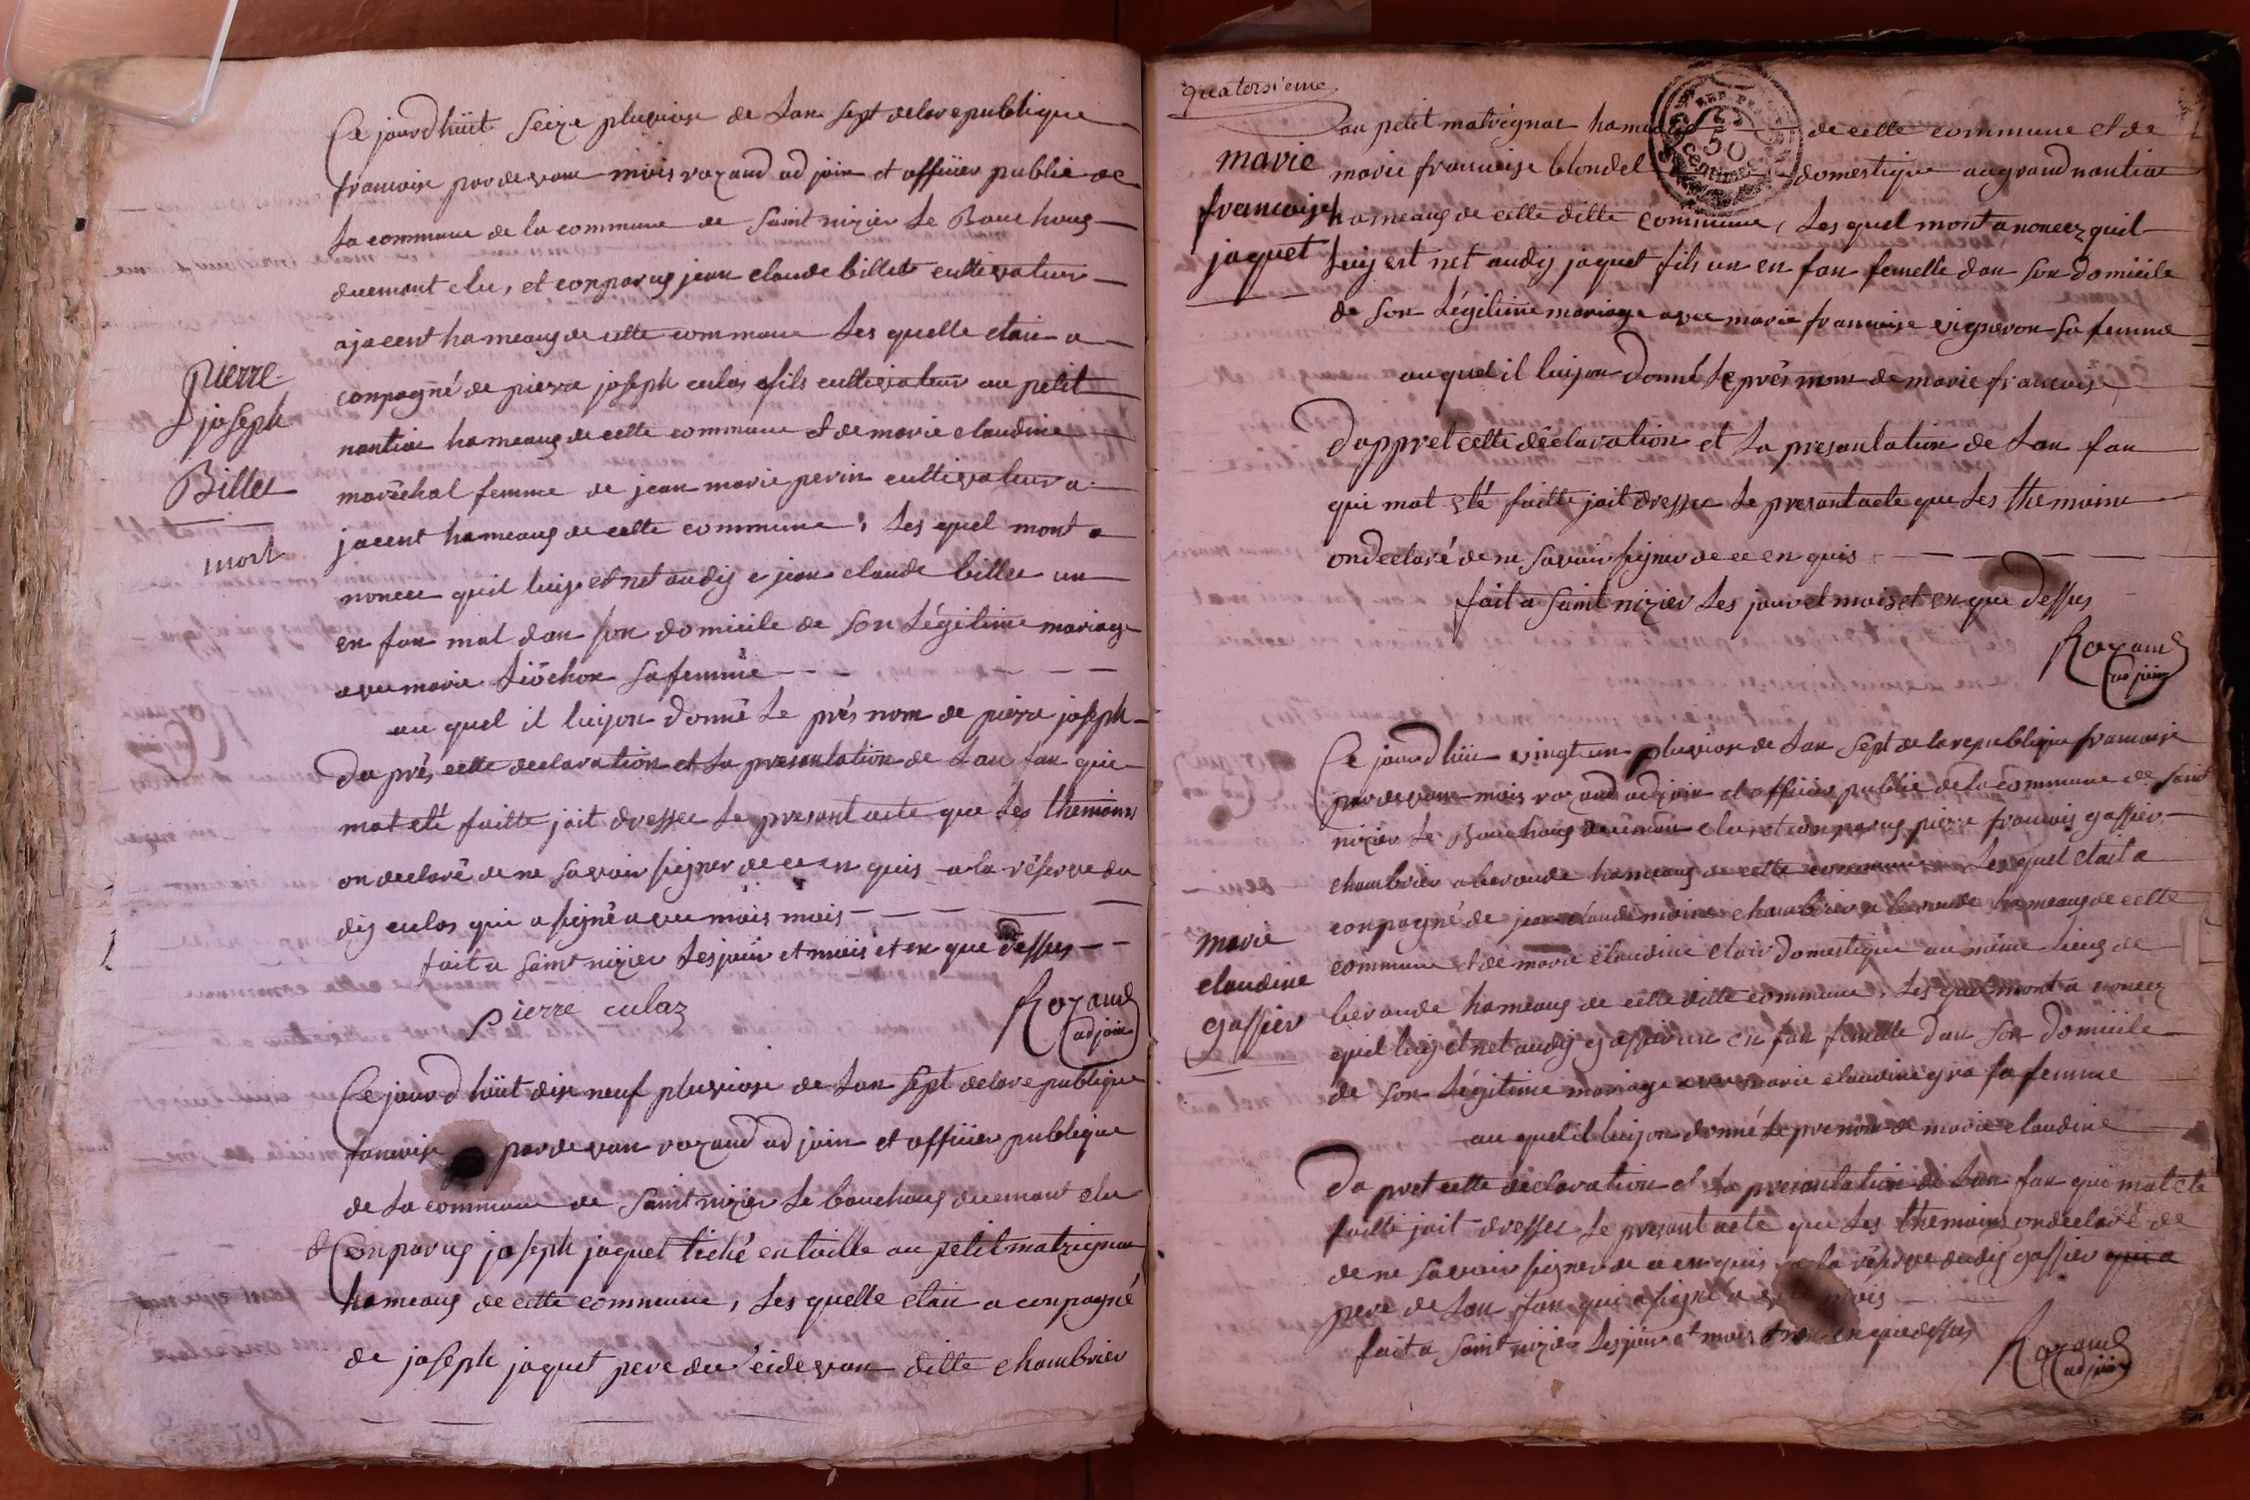 Ce jourdhüit seize pluviose de Lan sept delarepublique
francoise pardevan mois rozand ad join et officier public de
La commune de la commune de Saint nizier Le Bouchoug
duemant elu, et conparug jean claude billet cultivateur
ajacent hameaug de cette commune Les quelle etai a
conpagné de pierre joseph culas fils cultivateur au petit
nantia hameaug de cette commune et de marie claudine
maréchal femme de jean marie perin cultivateur a
jacent hameaug de cette commune, Les quel mont a
noncee quil luij et net audij e jean claude billet un
en fan mal dan son domicile de son Légitime mariage
avec marie Liöchon sa femme
au quel il luijon donné Le prés nom de pierre joseph
Da prés cette declaration et La presantation de Lan fan qui
mat eté faitte jait dressee Le presant acte que Les themoins
on declaré de ne savoir signer de ce en quis a la réserve du
dij culas qui a signé avec mois mois
fait a Saint nizier Les jour et mois et en que dessus
pierre culaz
Rozand
adjoin
pierre
joseph
Billet
mort
Ce jourd hüit dix neuf pluviose de Lan sept delare publique
francoise pardevan rozand ad join et officier publique
de La commune de Saint nizier Le bouchoug duemant elu
et Conparug joseph jaquet tiché en toille au petit matrignat
hameaug de cette commune, Les quelle etai a conpagné
de joseph jaquet pere du cidevan ditte chambrier
quatorsieme
au petit matrégnat hameaug de cette commune et de
marie francoise blondel domestique au grand nantia
hameaug de cette ditte commune, Les quel mont a noncez quil
Luij est net audij jaquet fils un en fan femelle dan son domicile
de son Légitime mariage avec marie francoise vigneron sa femme
au quel il luijon donné Le prés nom de marie francoise
Dappret cette déclaration et La presantation de Lan fan
qui mat eté faitte jait dressee Le presant acte que Les themoins
on declaré de ne savoir signer de ce en quis
fait a Saint nizier Les jour et mois et en que dessus
Rozand
adjoin
marie
francoise
jaquet
Ce jourd hüi vingt un pluviose de Lan sept de larepublique francoise
pardevan mois rozand adjoin et officier public de la commune de Saint
nizier Le Bouchoug duemant elu et conparug pierre francois gassier
chambrier a beroude hameaug de cette commune Les quel etait a
conpagné de jean claude moine chambrier a beroude hameaug de cette
commune et de marie claudine clair domestique au même Lieug de
beroude hameaug de cette ditte commune, Les quel mont a noncez
quil luij et net audij gassier un en fan femelle dan son domicile
de son Légitime mariage avec marie claudine gra sa femme
au quel il luijon donné Le prenom de marie claudine
Da pret cette déclaration et La presantation de Lan fan qui mat eté
faitte jait dressee Le presant acte que Les themoins on declaré de
de ne savoir signer de ce en quis a la réserve dudij gassier qui a
pere de Lan fan qui a signé a mois
fait a Saint nizier Les jour et mois et en que dessus
Rozand
adjoin
marie
claudine
gassier